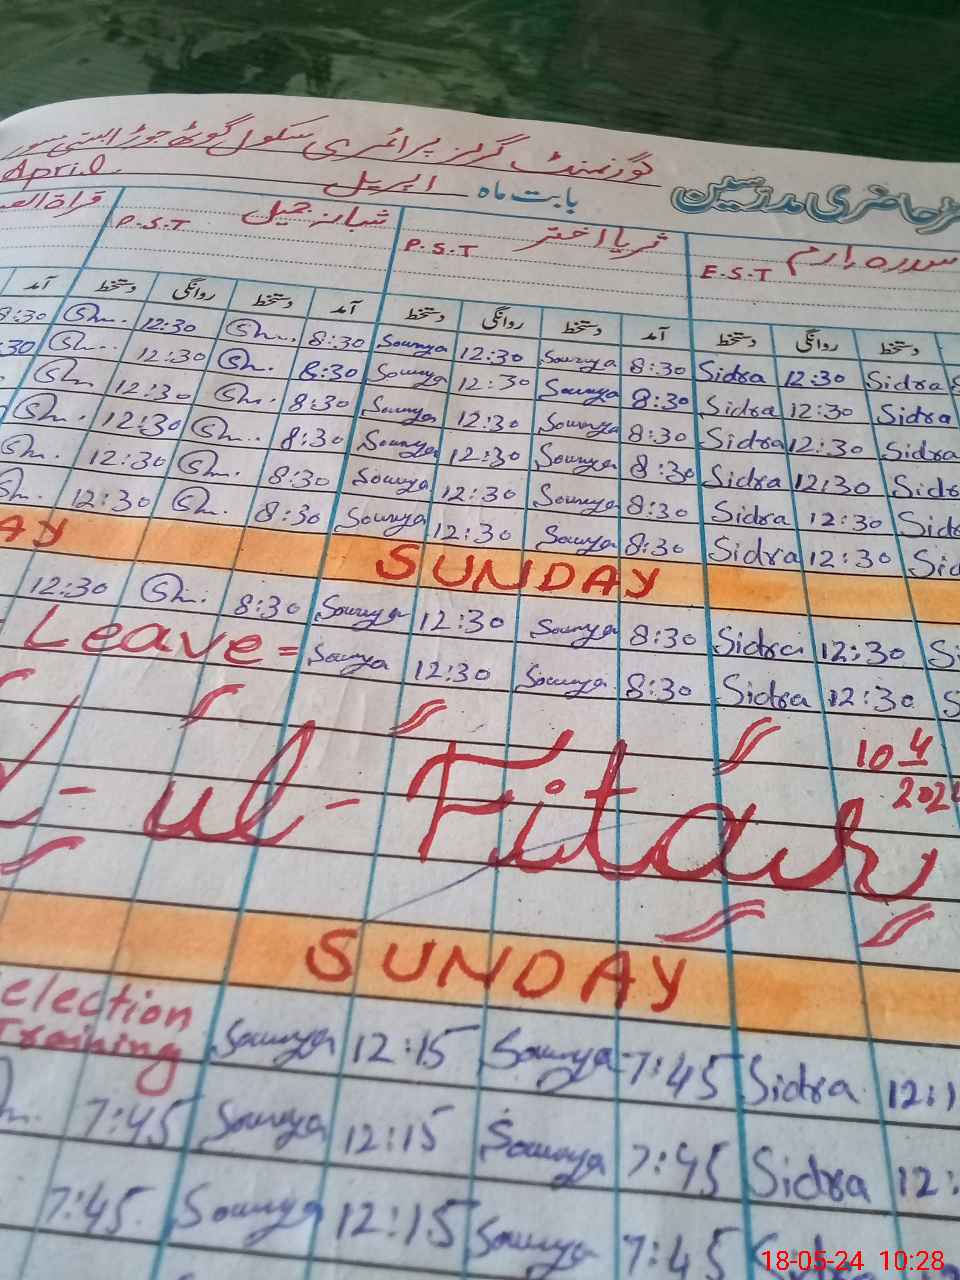 گورنمنٹ گرلز پرائمری سکول گوٹھ
حاضری مدرسین بابت ماہ اپریل April.
سدرہ ارم ثریا اختر شبانہ جمیل
E.S.T P.S.T P.S.T
دستخط روانگی دستخط آمد دستخط روانگی دستخط آمد دستخط روانگی دستخط آمد
8:30 Sh.. 12:30 Sh... 8:30 Sourya 12:30 Sourya 8:30 Sidra 12:30 Sidra
:30 Sh.. 12:30 Sh. 8:30 Sourya 12:30 Sourya 8:30 Sidra 12:30 Sidra
Sh 12:30 Sh. 8:30 Sourya 12:30 Sourya 8:30 Sidra 12:30 Sidra
Sh. 12:30 Sh.. 8:30 Sourya 12:30 Sourya 8:30 Sidra 12:30 Sidra
Sh. 12:30 Sh. 8:30 Sourya 12:30 Sourya 8:30 Sidra 12:30 Sid
Sh. 12:30 Sh. 8:30 Sourya 12:30 Sourya 8:30 Sidra 12:30 Sid
AY SUNDAY
12:30 Sh. 8:30 Sourya 12:30 Sourya 8:30 Sidra 12:30 S
Leave = Sourya 12:30 Sourya 8:30 Sidra 12:30 S
10 4
202
-ul-Fitar
SUNDAY
election
Training Sourya 12:15 Sourya 7:45 Sidra 12:1
7:45 Sourya 12:15 Sourya 7:45 Sidra 12:
7:45. Sourya 12:15 Sourya 7:45 Sid
18-05-24 10:28